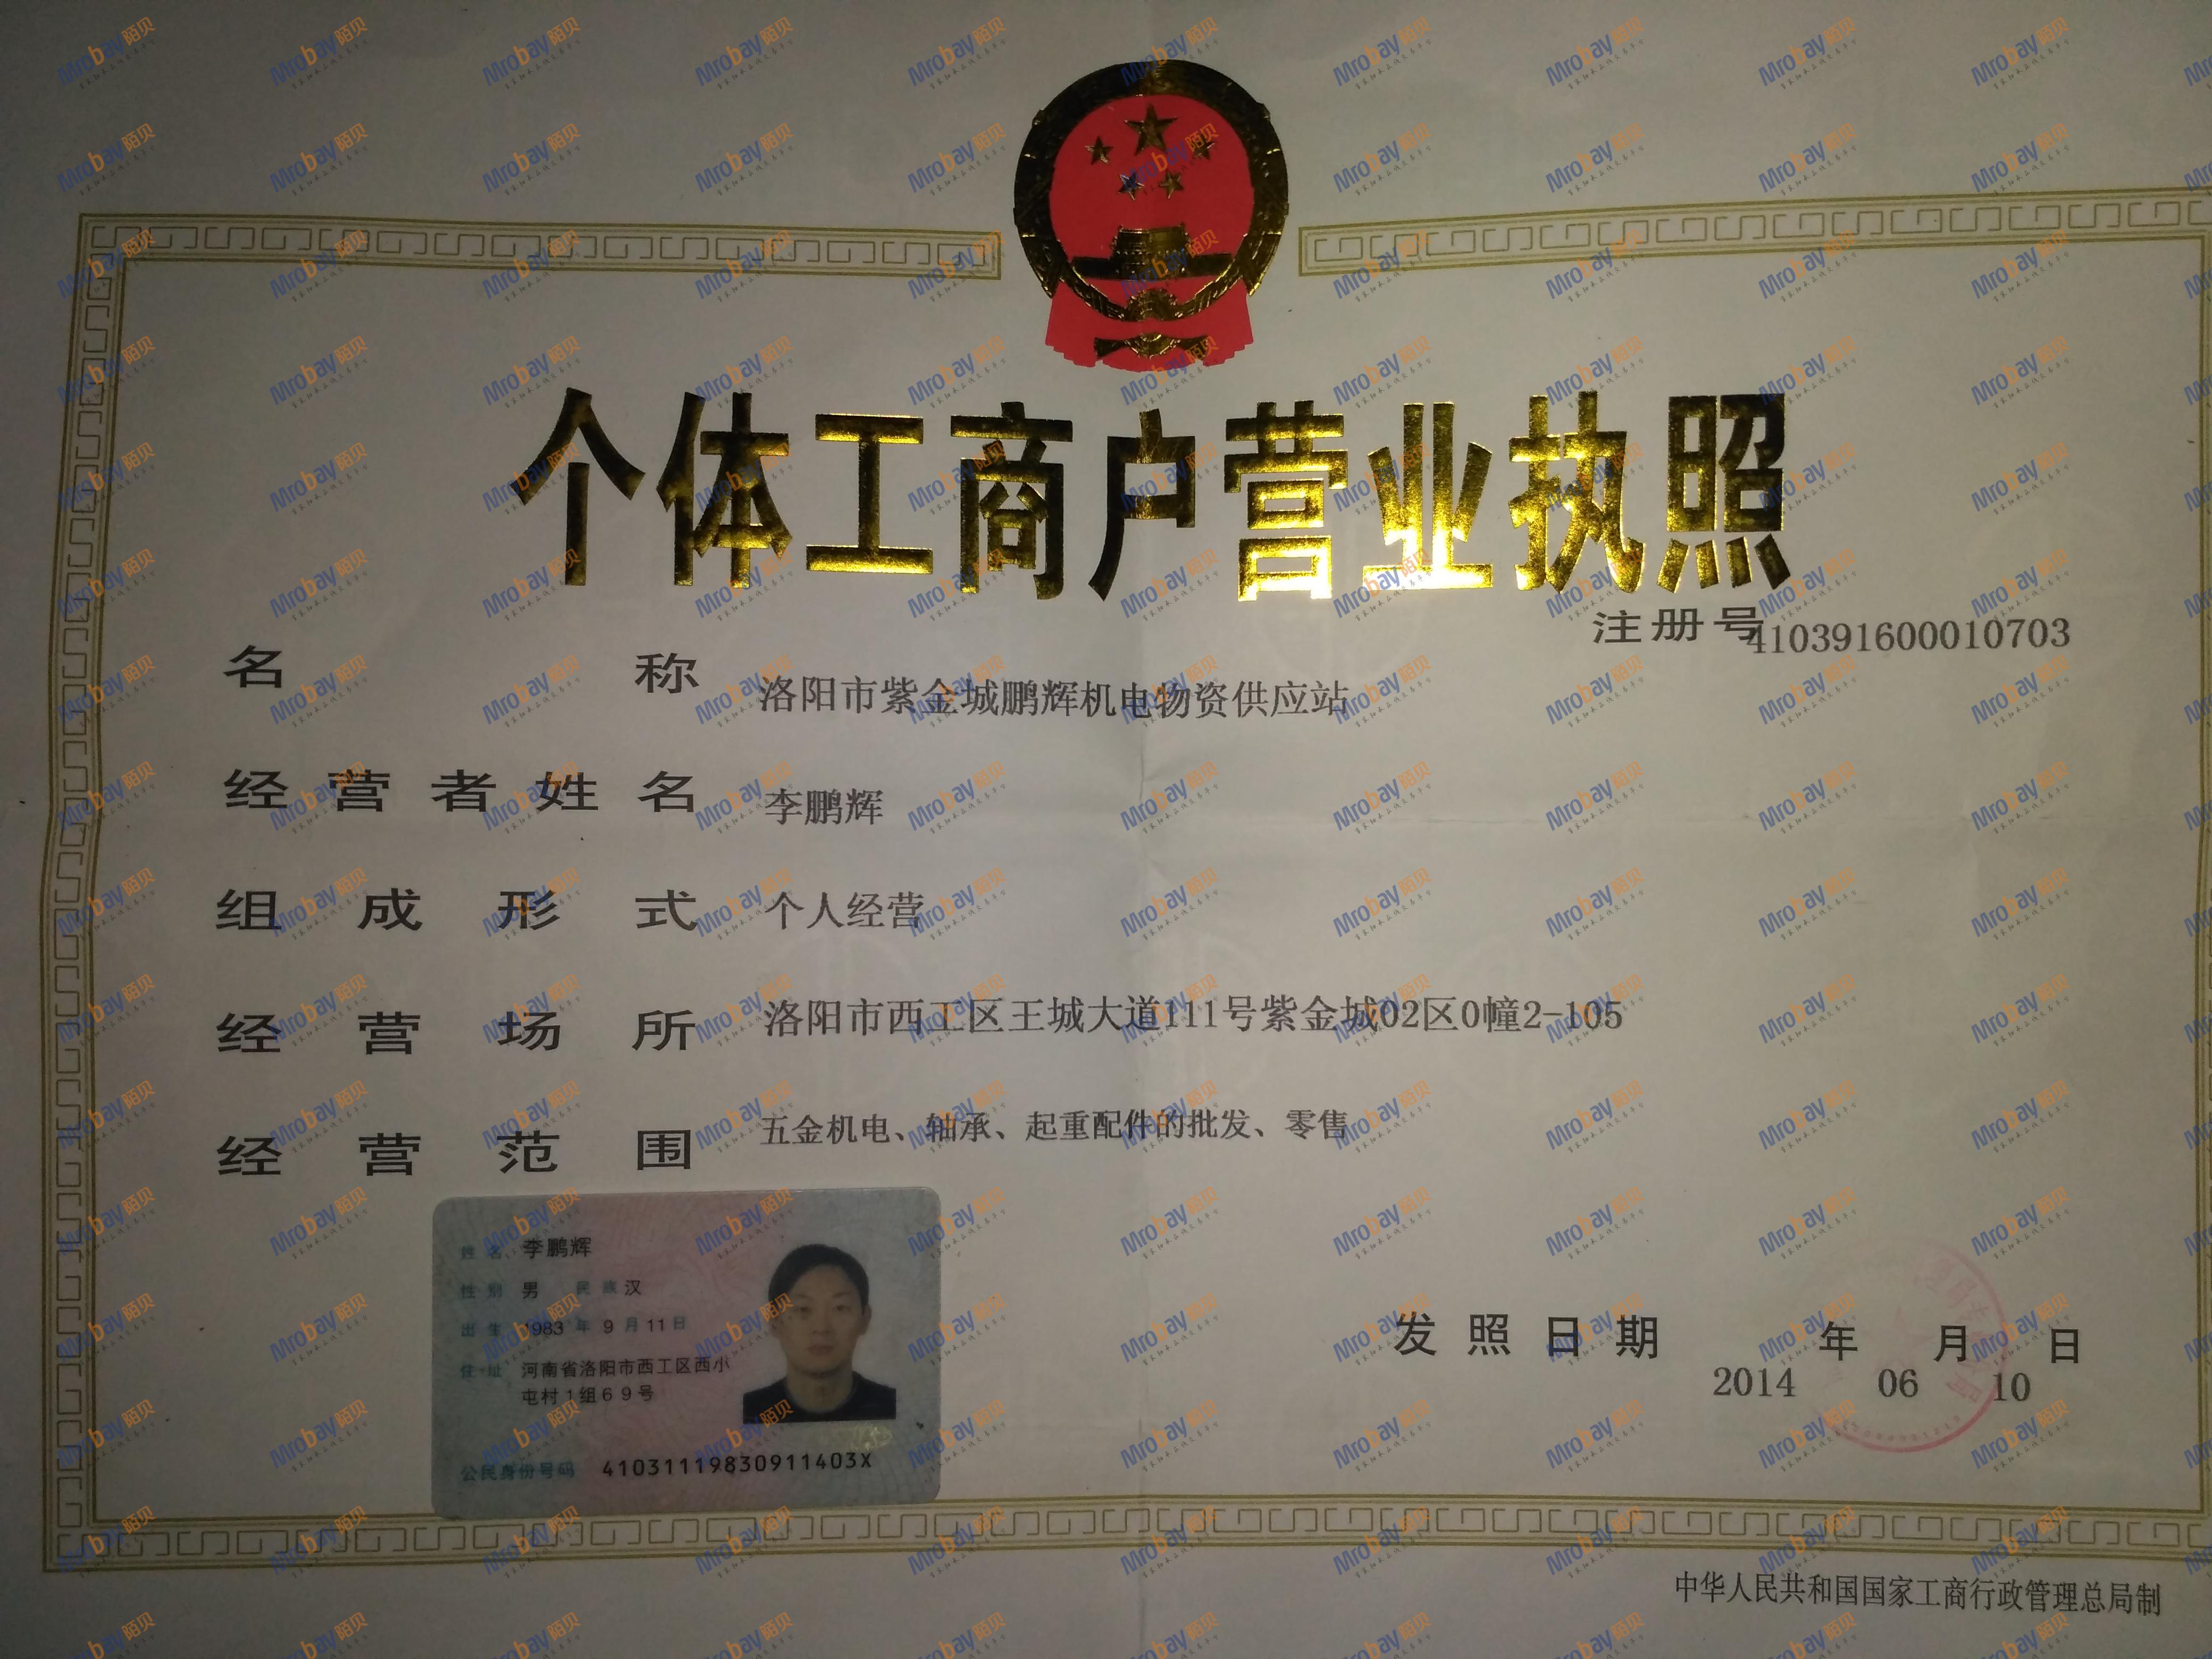 个体工商户营业执照
注册号410391600010703
名称 洛阳市紫金城鹏辉机电物资供应站
经营者姓名 李鹏辉
组成形式 个人经营
经营场所 洛阳市西工区王城大道111号紫金城02区0幢2-105
经营范围 五金机电、轴承、起重配件的批发、零售
姓名 李鹏辉
性别 男 民族 汉
出生 1983 年 9 月 11 日
住址 河南省洛阳市西工区西小
屯村1组69号
公民身份号码 41031119830911403X
发照日期 年 月 日
2014 06 10
中华人民共和国国家工商行政管理总局制
Mrobay陌贝